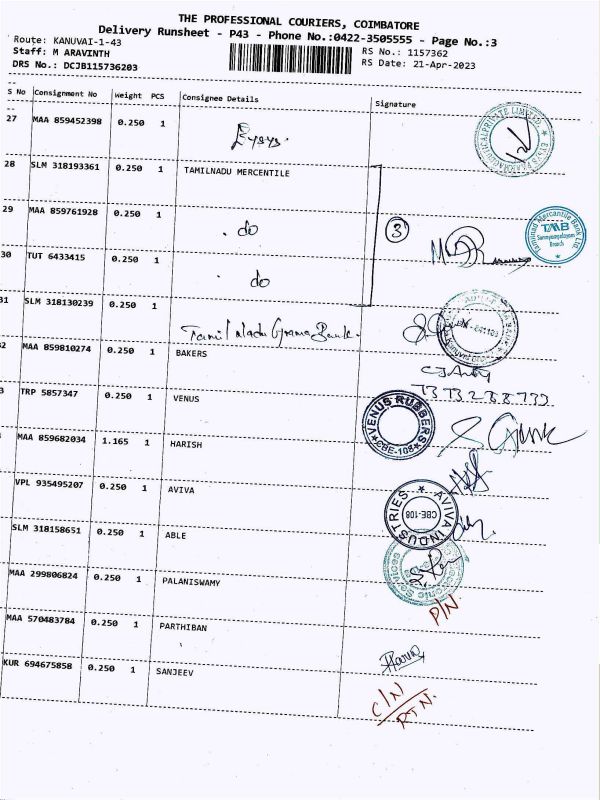 THE PROFESSIONAL COURIERS, COIMBATORE
Delivery Runsheet - P43 - Phone No.:0422-3505555 - Page No.:3
Route: KANUVAI-1-43
RS No.: 1157362
Staff: M ARAVINTH
RS Date: 21-Apr-2023
DRS No.: DCJB115736203
S No Consignment No Weight PCS Consignee Details Signature
27 MAA 859452398 0.250 1
28 SLM 318193361 0.250 1 TAMILNADU MERCENTILE
29 MAA 859761928 0.250 1 do
3
TMB
Branch
30 TUT 6433415 0.250 1 do
31 SLM 318130239 0.250 1 Tamil Nadu Grama Bank
2 MAA 859810274 0.250 1 BAKERS
3 TRP 5857347 0.250 1 VENUS
VENUS RUBBERS
CBE-108
MAA 859682034 1.165 1 HARISH
VPL 935495207 0.250 1 AVIVA
AVIVA INDUSTRIES
CBE-108
SLM 318158651 0.250 1 ABLE
MAA 299806824 0.250 1 PALANISWAMY
P/N
MAA 570483784 0.250 1 PARTHIBAN
KUR 694675858 0.250 1 SANJEEV
C/N
RTN.